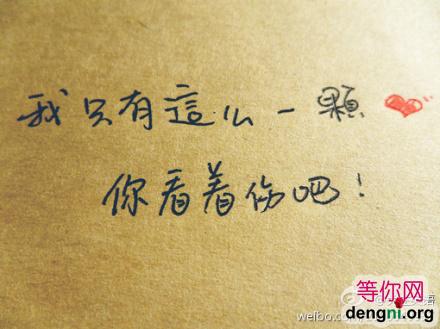 我只有這么一顆❤
你看着伤吧！
等你网
dengni.org
weibo.com